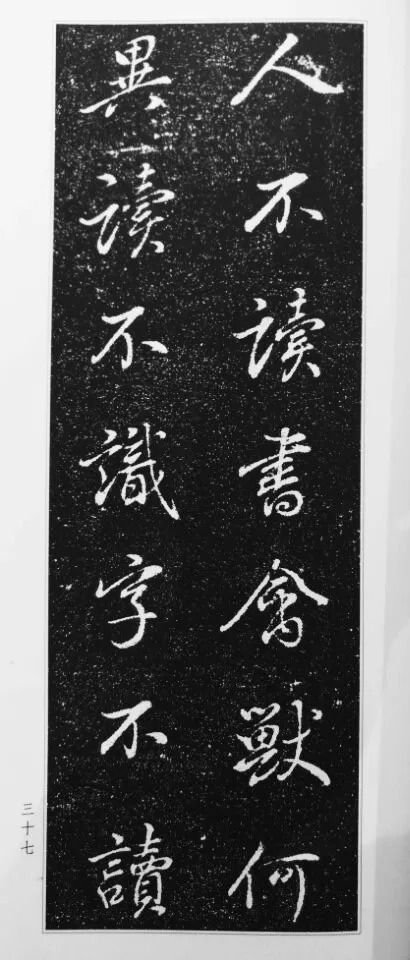 人不读書禽獸何
異读不識字不
讀
三十七